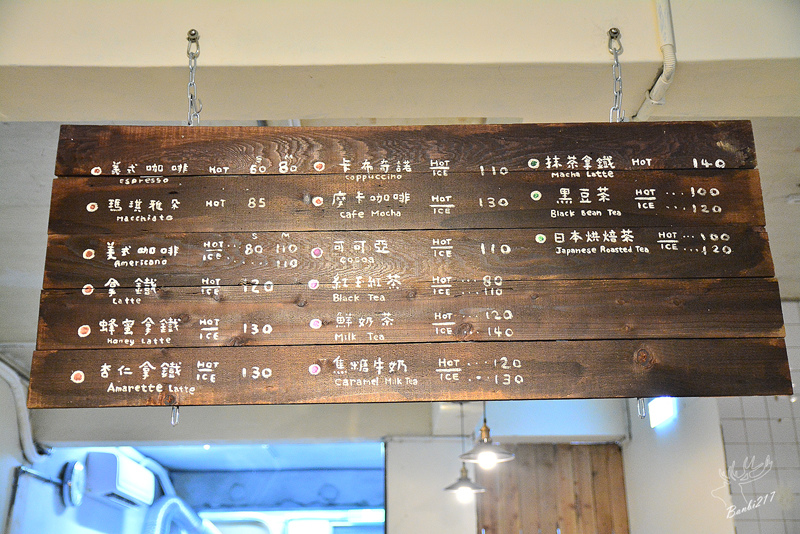 S M
美式咖啡 HOT 60 80
espresso
瑪淇雅朵 HOT 85
Macchiato
S M
美式咖啡 HOT ... 80 110
Americano ICE ... 110
拿鐵 HOT ICE 120
Latte
蜂蜜拿鐵 HOT ICE 130
Honey Latte
杏仁拿鐵 HOT ICE 130
Amarette Latte
卡布奇諾 HOT ICE 110
Coppuccino
摩卡咖啡 HOT ICE 130
Cafe Mocha
可可亞 HOT ICE 110
Cocoa
紅玉紅茶 HOT ... 80
Black Tea ICE ... 110
鮮奶茶 HOT ... 120
Milk Tea ICE ... 140
焦糖牛奶 HOT ... 120
Caramel Milk Tea ICE ... 130
抹茶拿鐵 HOT 140
Macha Latte
黑豆茶 HOT ... 100
Black Bean Tea ICE ... 120
日本烘焙茶 HOT ... 100
Japanese Roasted Tea ICE ... 120
Banbi217